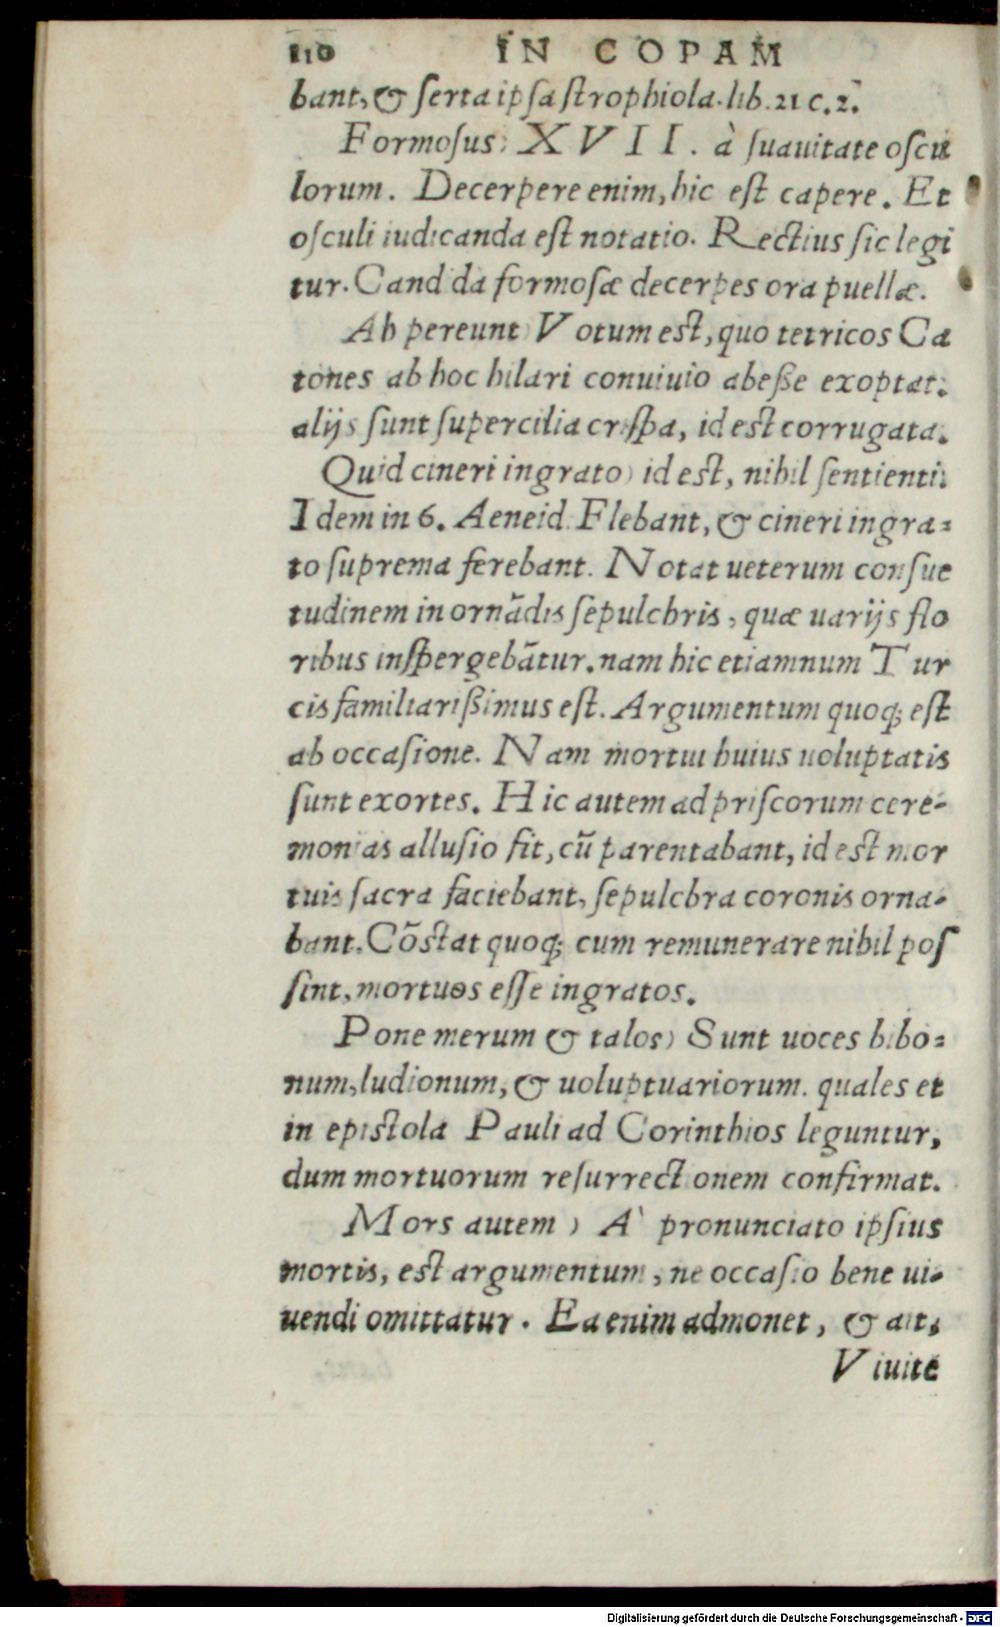 110 IN COPAM
bant, & ſerta ipſa ſtrophiola. lib. 21 c. 2.
Formoſus: XVII. à ſuauitate oſcu
lorum. Decerpere enim, hic eſt capere. Et
oſculi iudicanda eſt notatio. Rectius ſic legi
tur. Candida formoſæ decerpes ora puellæ.
Ah pereunt) Votum eſt, quo tetricos Ca
tones ab hoc hilari conuiuio abeſſe exoptat.
alijs ſunt ſupercilia criſpa, id eſt corrugata.
Quid cineri ingrato) id eſt, nihil ſentienti.
Idem in 6. Aeneid. Flebant, & cineri ingra=
to ſuprema ferebant. Notat ueterum conſue
tudinem in ornādis ſepulchris, quæ uarijs flo
ribus inſpergebātur. nam hic etiamnum Tur
cis familiariſsimus eſt. Argumentum quoq; eſt
ab occaſione. Nam mortui huius uoluptatis
ſunt exortes. Hic autem ad priſcorum cere-
monias alluſio fit, cū parentabant, id eſt mor
tuis ſacra faciebant, ſepulchra coronis orna-
bant. Cōſtat quoq; cum remunerare nihil poſ
ſint, mortuos eſſe ingratos.
Pone merum & talos) Sunt uoces bibo=
num, ludionum, & uoluptuariorum. quales et
in epiſtola Pauli ad Corinthios leguntur,
dum mortuorum reſurrectionem confirmat.
Mors autem) A` pronunciato ipſius
mortis, eſt argumentum, ne occaſio bene ui-
uendi omittatur. Ea enim admonet, & ait,
Viuite
Digitalisierung gefördert durch die Deutsche Forschungsgemeinschaft - DFG